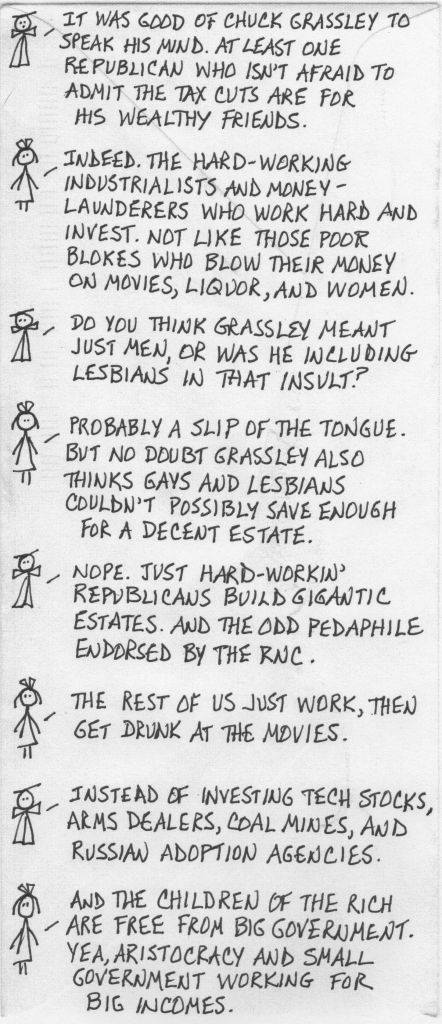 IT WAS GOOD OF CHUCK GRASSLEY TO
SPEAK HIS MIND. AT LEAST ONE
REPUBLICAN WHO ISN'T AFRAID TO
ADMIT THE TAX CUTS ARE FOR
HIS WEALTHY FRIENDS.
INDEED. THE HARD-WORKING
INDUSTRIALISTS AND MONEY-
LAUNDERERS WHO WORK HARD AND
INVEST. NOT LIKE THOSE POOR
BLOKES WHO BLOW THEIR MONEY
ON MOVIES, LIQUOR, AND WOMEN.
DO YOU THINK GRASSLEY MEANT
JUST MEN, OR WAS HE INCLUDING
LESBIANS IN THAT INSULT?
PROBABLY A SLIP OF THE TONGUE.
BUT NO DOUBT GRASSLEY ALSO
THINKS GAYS AND LESBIANS
COULDN'T POSSIBLY SAVE ENOUGH
FOR A DECENT ESTATE.
NOPE. JUST HARD-WORKIN'
REPUBLICANS BUILD GIGANTIC
ESTATES. AND THE ODD PEDAPHILE
ENDORSED BY THE RNC.
THE REST OF US JUST WORK, THEN
GET DRUNK AT THE MOVIES.
INSTEAD OF INVESTING TECH STOCKS,
ARMS DEALERS, COAL MINES, AND
RUSSIAN ADOPTION AGENCIES.
AND THE CHILDREN OF THE RICH
ARE FREE FROM BIG GOVERNMENT.
YEA, ARISTOCRACY AND SMALL
GOVERNMENT WORKING FOR
BIG INCOMES.